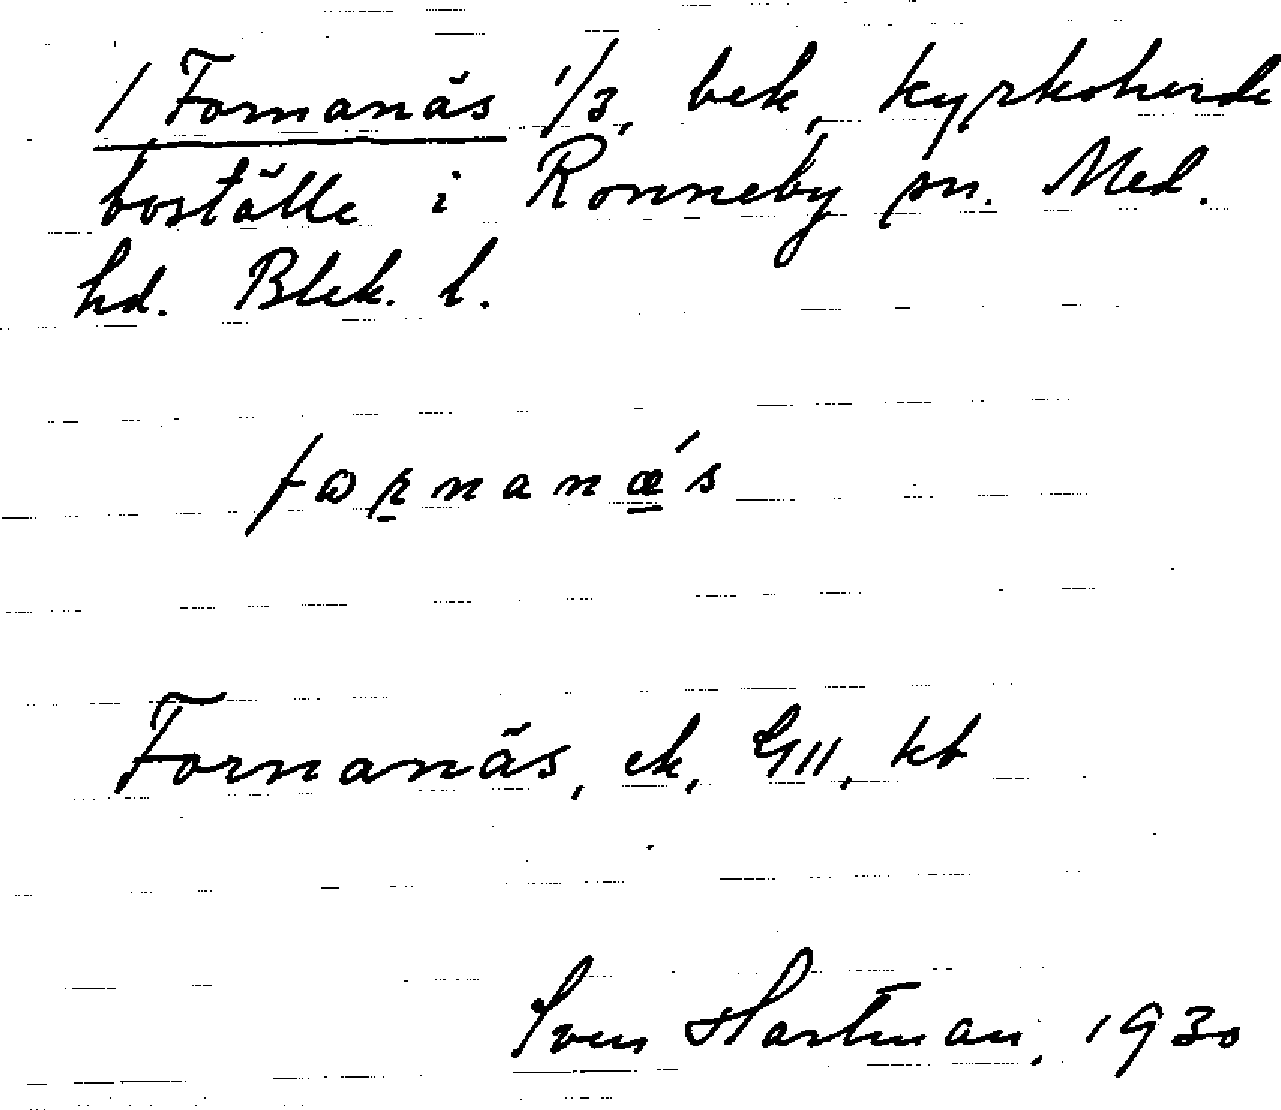 / Fornanäs 1/3, bek, kyrkoherde
boställe i Ronneby sn. Med.
hd. Blek. l.
fɷrnanǽs
Fornanäs, ek, GII, kb
Sven Hartman, 1930